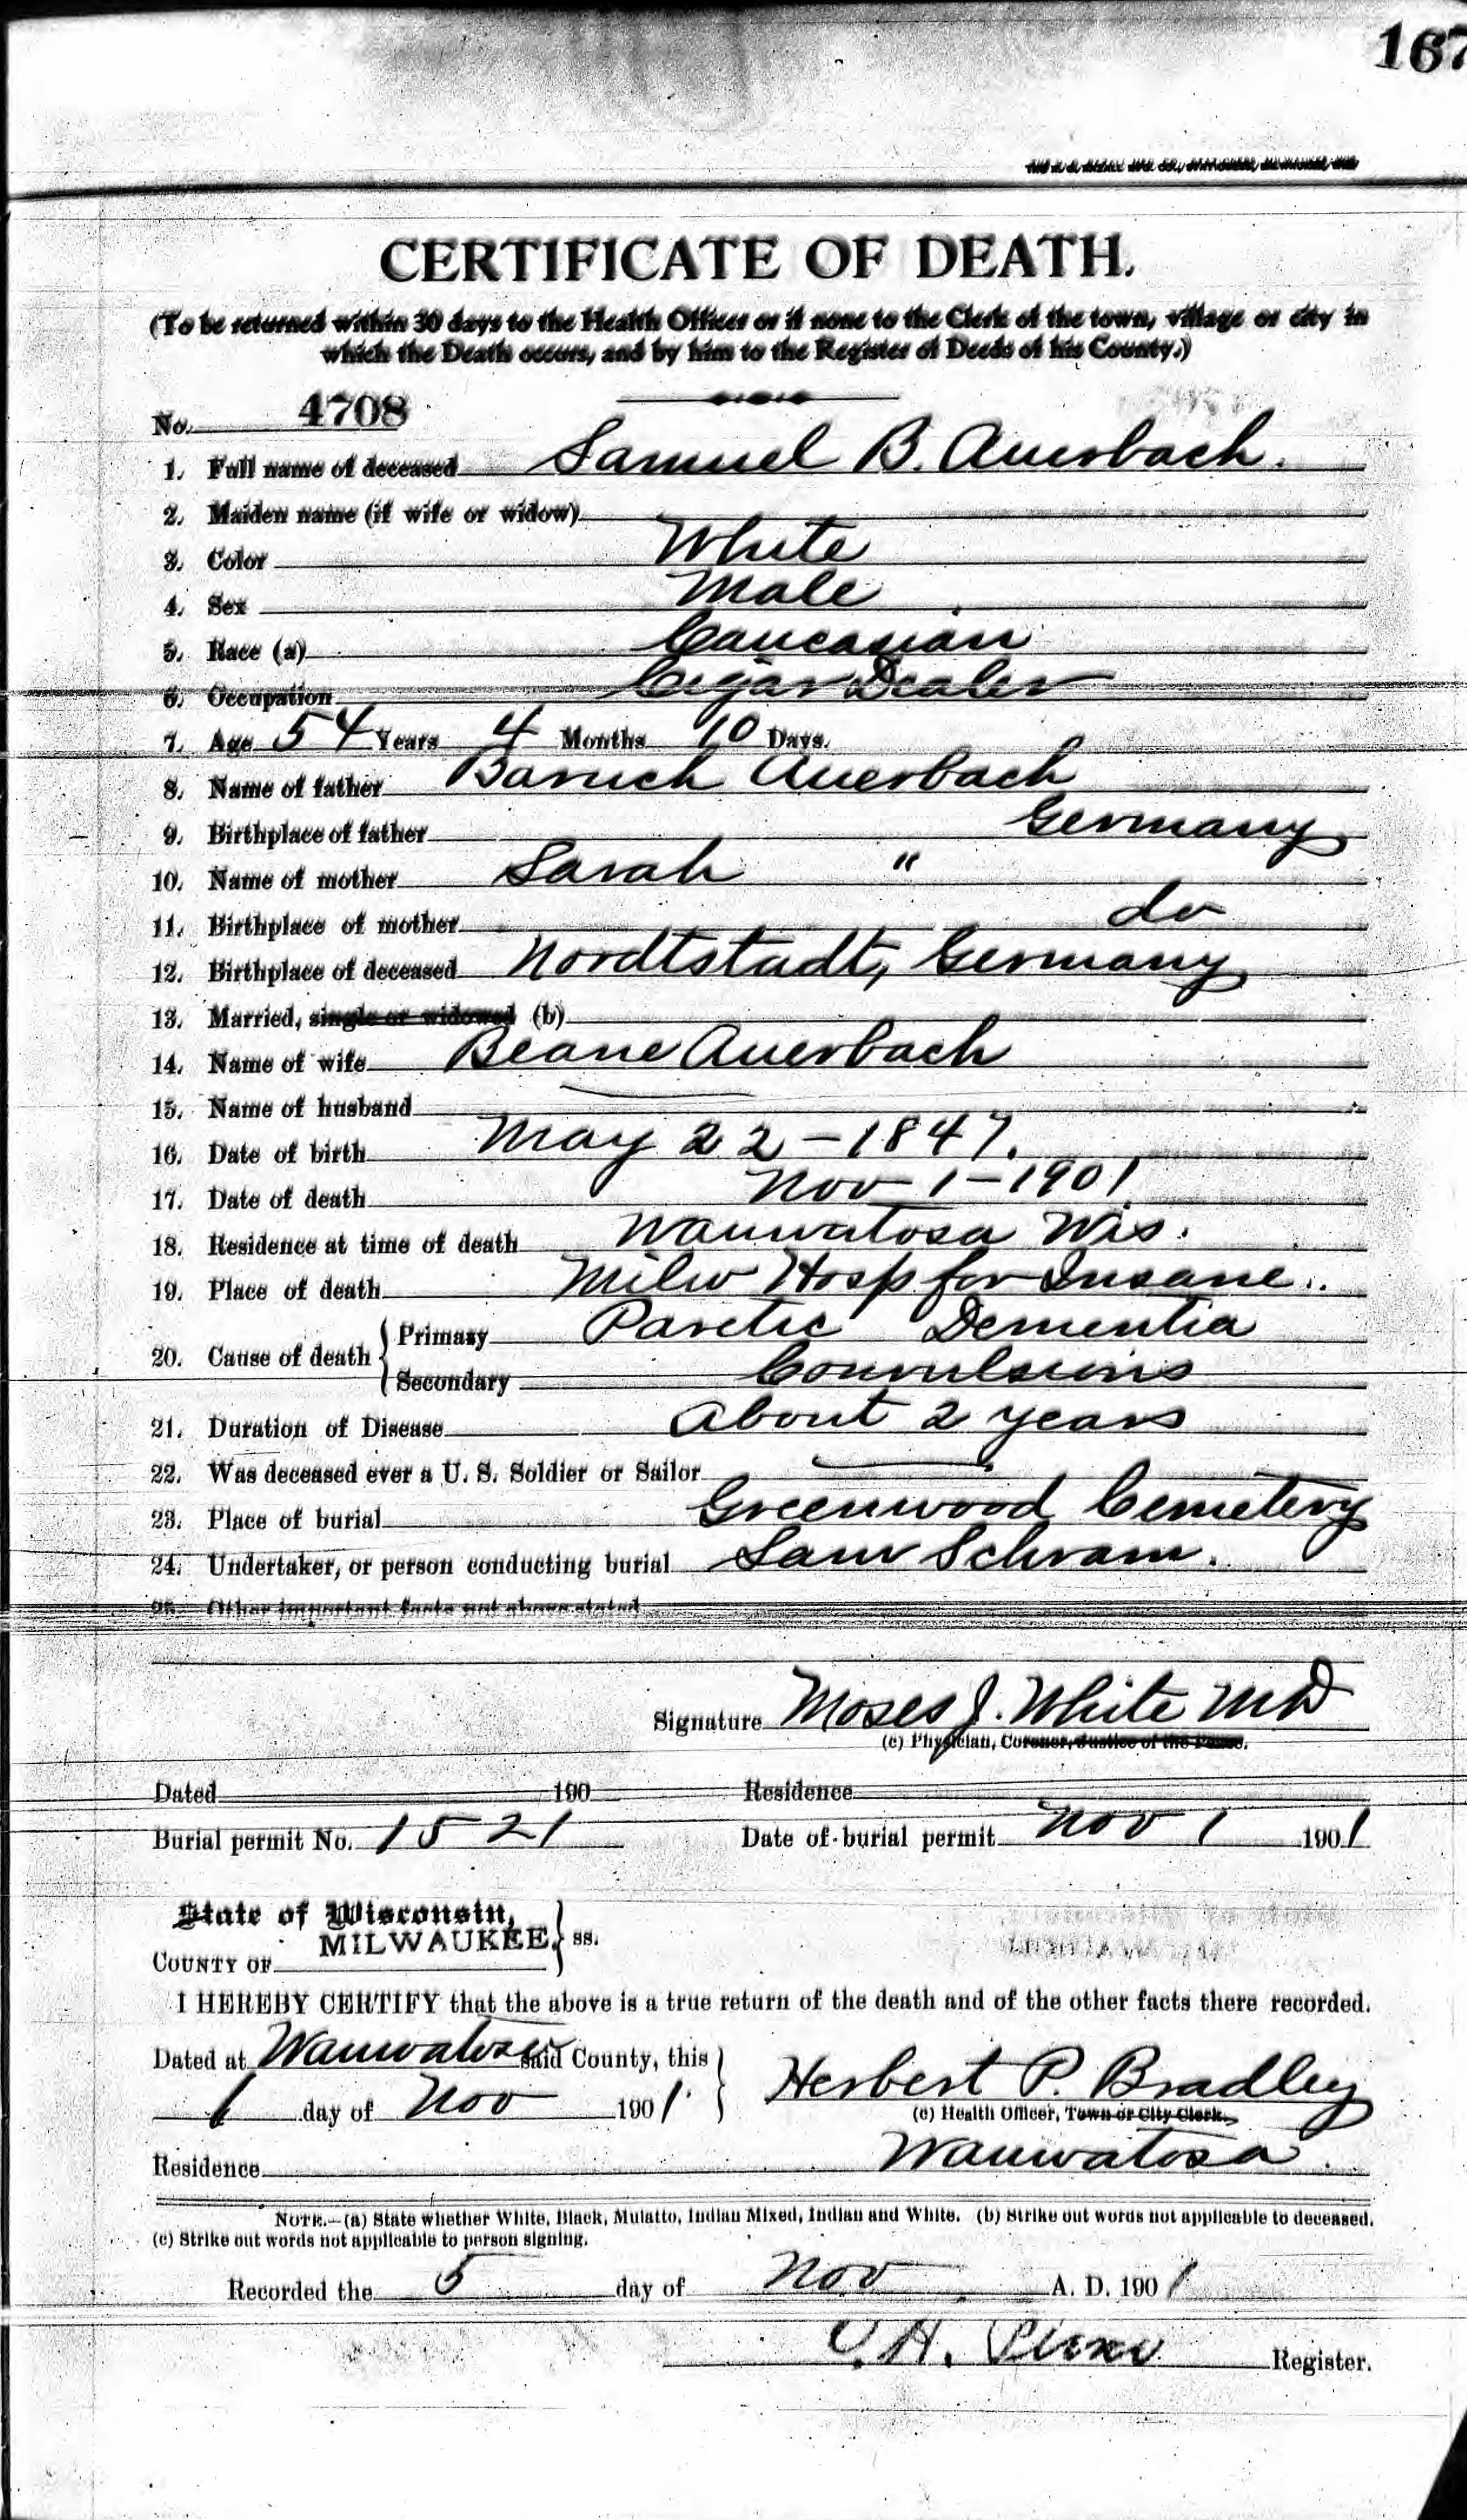 167
CERTIFICATE OF DEATH.
(To be returned within 30 days to the Health Officer or if none to the Clerk of the town, village or city in
which the Death occurs, and by him to the Register of Deeds of his County.)
No. 4708
1. Full name of deceased Samuel B. Auerbach.
2. Maiden name (if wife or widow)
3. Color White
4. Sex Male
5. Race (a) Caucasian
6. Occupation Cigar Dealer
7. Age 54 Years 4 Months 10 Days.
8. Name of father Baruch Auerbach
9. Birthplace of father Germany
10. Name of mother Sarah "
11. Birthplace of mother do
12. Birthplace of deceased Nordtstadt, Germany
13. Married, single or widowed (b)
14. Name of wife Beane Auerbach
15. Name of husband
16. Date of birth May 22-1847.
17. Date of death Nov 1-1901
18. Residence at time of death Wauwatosa Wis.
19. Place of death Milw Hosp for Insane.
20. Cause of death Primary Paretic Dementia
Secondary Convulsions
21. Duration of Disease About 2 years
22. Was deceased ever a U. S. Soldier or Sailor
23. Place of burial Greenwood Cemetery
24. Undertaker, or person conducting burial Sam Schram.
25. Other important facts not above stated
Signature Moses J. White MD
(c) Physician, Coroner, Justice of the Peace.
Dated 190 Residence
Burial permit No. 1521 Date of burial permit Nov 1 1901
State of Wisconsin,
COUNTY OF MILWAUKEE. } ss.
I HEREBY CERTIFY that the above is a true return of the death and of the other facts there recorded.
Dated at Wauwatosa said County, this
1 day of Nov 1901. Herbert P. Bradley
(c) Health Officer, Town or City Clerk.
Residence Wauwatosa.
NOTE.—(a) State whether White, Black, Mulatto, Indian Mixed, Indian and White. (b) Strike out words not applicable to deceased.
(c) Strike out words not applicable to person signing.
Recorded the 5 day of Nov A. D. 1901
Register.